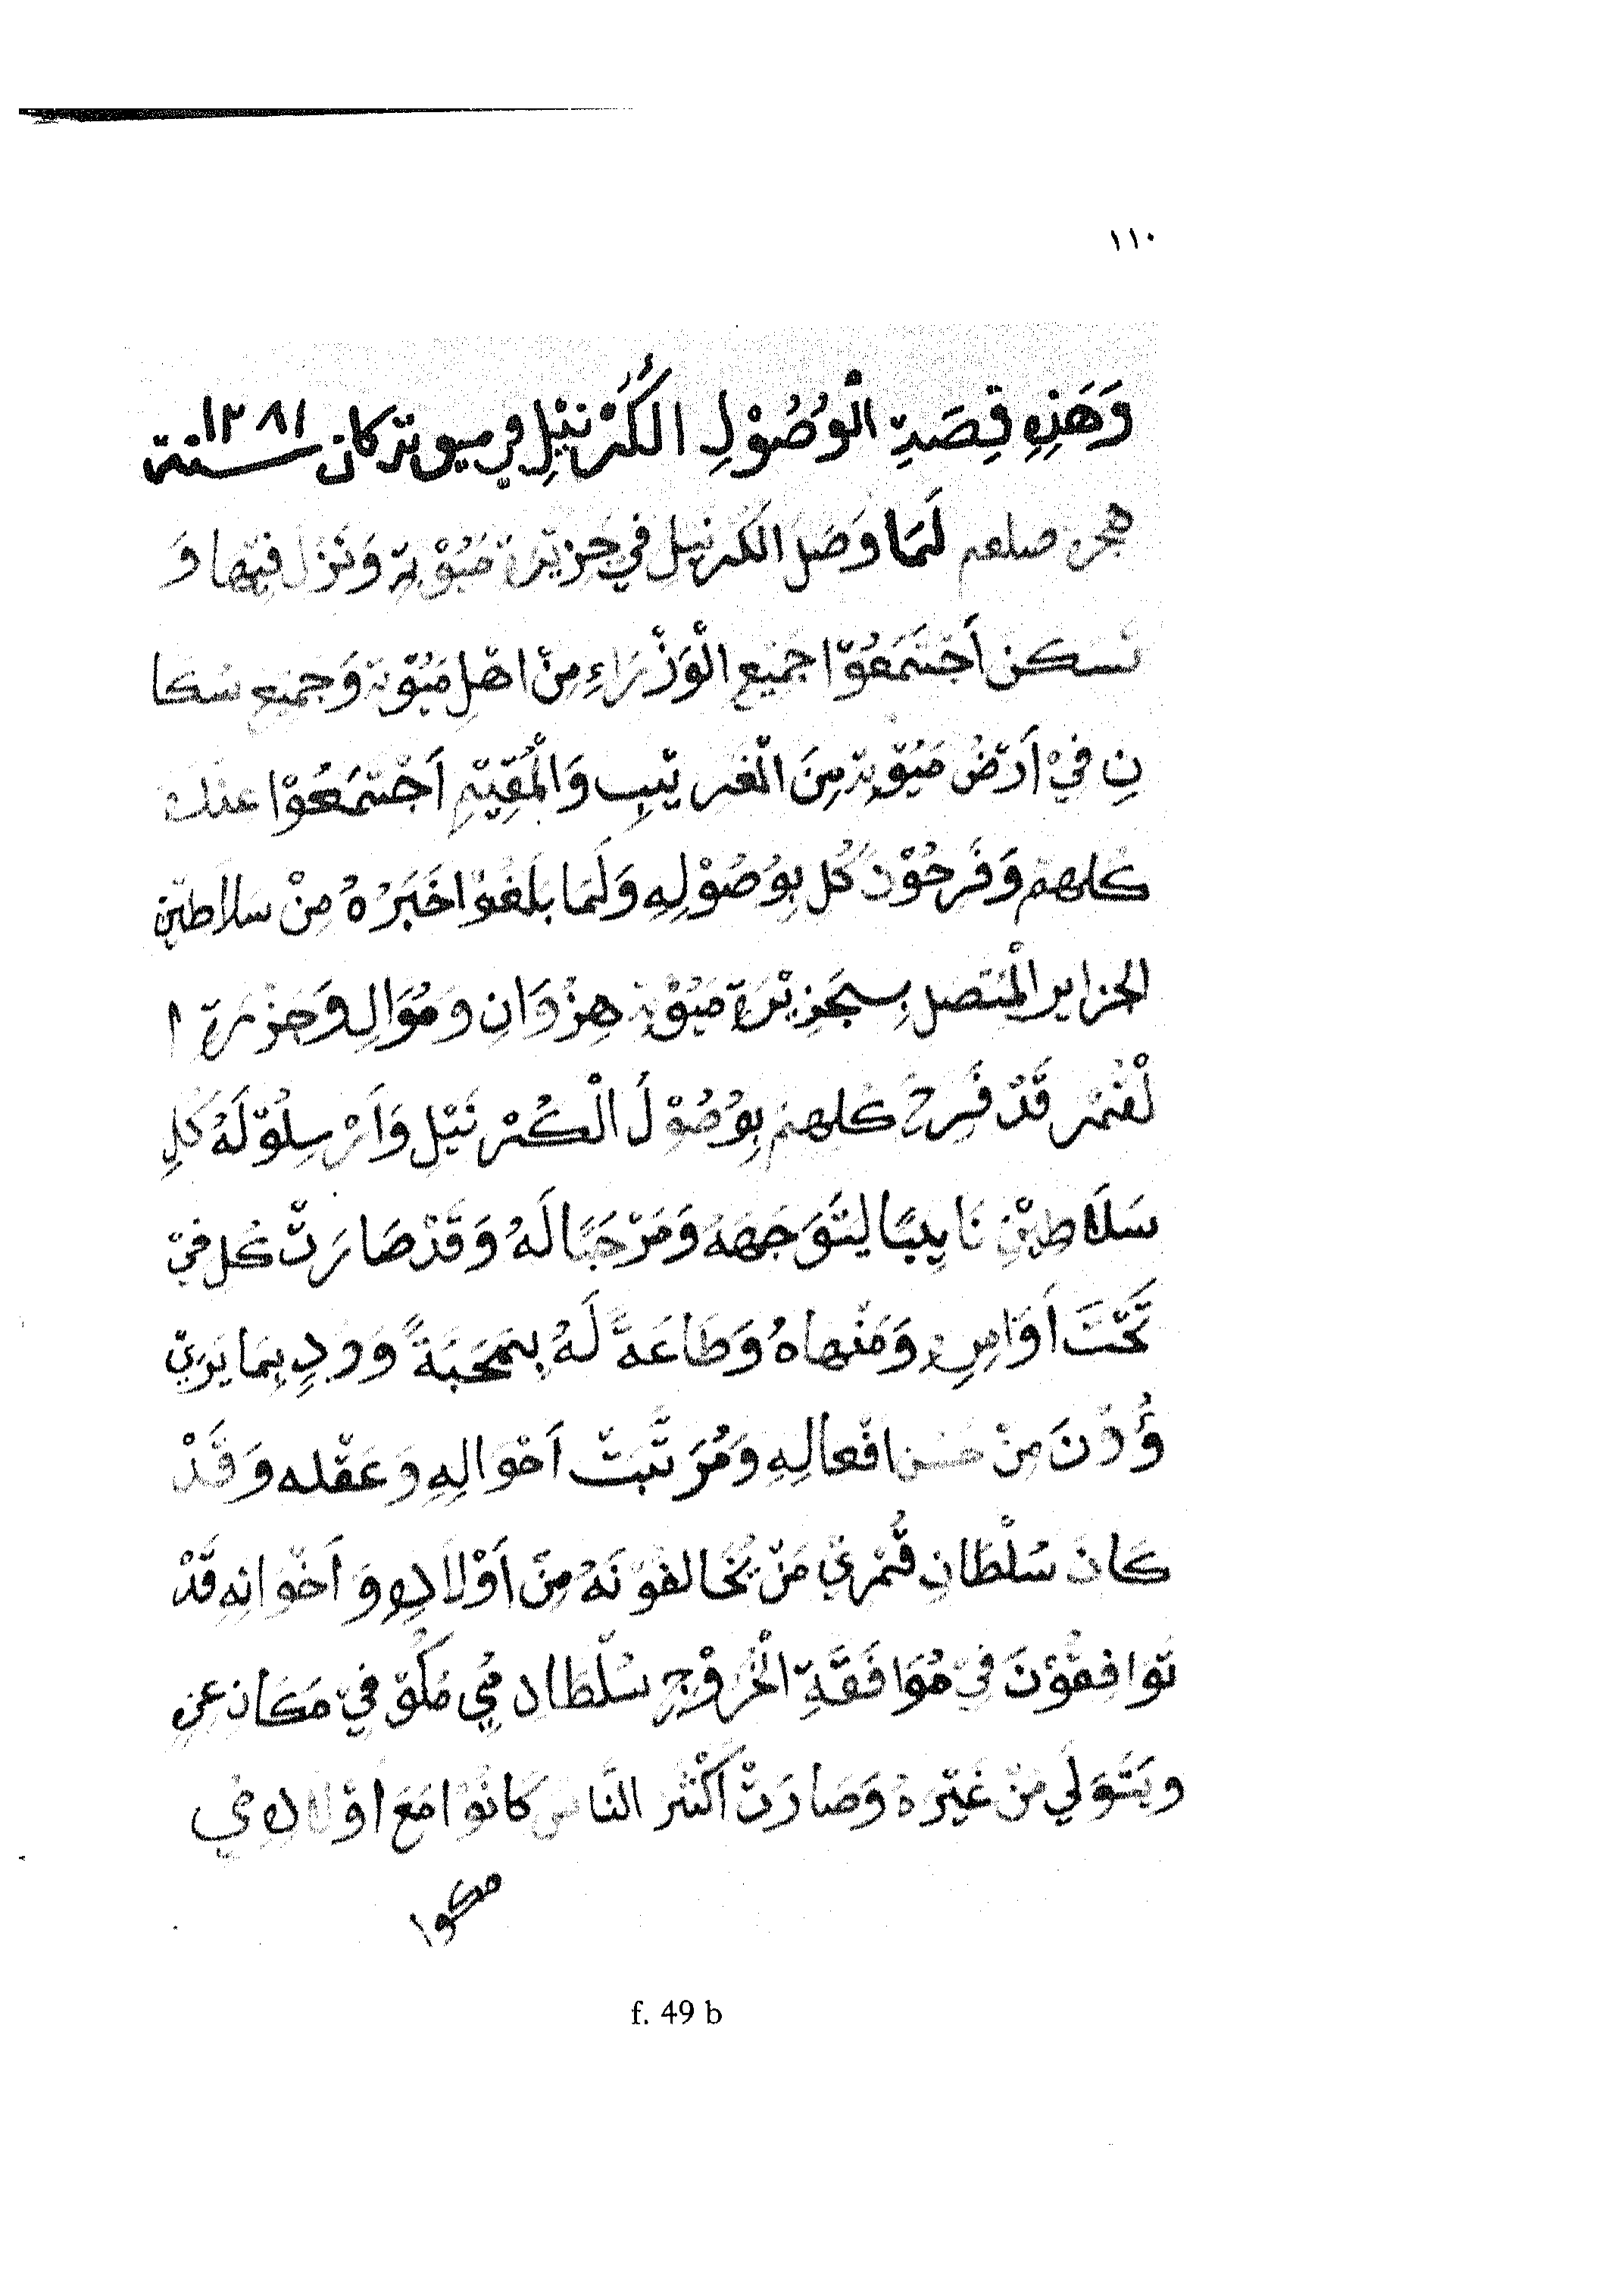 ١١٠
وَهَذِهِ قِصَةِ الْوُصُوْلِ الكُرْنَيْلِ في ميوتركان سنة ١٢٨١
هجرة صلعم لَمَا وَصَلَ الكرنيل في جزيرة مَيُوْتة وَنَزل فيها وَ
تسكن اَجْتَمَعُوْا جَمِيْعِ الْوَزْرَاءِ مِنْ اهْلِ مَيُوْتة وَجميع سكا
نِ فيْ اَرْضُ مَيُوْتة مِنَ الْغريْبِ وَالْمُقِيْمِ اَجْتَمَعُوْا عنده
كلهمْ وَفَرحُوْنَ كُلِ بِوُصُوْلِهِ وَلَمَا بلَغُوْا خَبَرُهُ مِنْ سلاطين
الجزاير الْمتصل بِسجَزِيْرَة ميُوْتة هِزْوَانِ وَمُوَالِ وَجَزْيرة ا
لْقُمْر قَدْ فَرِحَ كلهم بِوُصُوْلَ الْكُرنَيْل وَاَرْسِلُوْ لَهُ كُلِ
سَلَاطِيْنِ نَايِبًا ليَتَوَجَهَهُ وَمَرْحَبًا لَهُ وَقَدْ صَارَتْ كُل فيْ
تَحْتَ اَوَامِرِهِ وَمَنْهاهُ وَطَاعَةً لَهُ بِمَحَبَةً وَوِدِ بِمَا يَريْ
ؤُدْنَ مِنْ حُسْنِ افْعالِهِ وَمُرَتَّبَتْ اَحْوَالِهِ وَعَقْله وَقَدْ
كَانَ سُلْطَانِ قُمْريْ مَنْ يُخَالفُوْنَهُ مِنْ اَوْلَادِهِ وَاَخْوَانِهِ قَدْ
تَوَافِقُوْنَ فيْ مُوَافَقَةِ الْخُرُوْجِ سُلْطَان مُحِي مُلْكُوْ فيْ مَكَانِ عزِه
وَيَتَوَلَي مِنْ غَيْرِهُ وَصَارَتْ اَكْثَر النَّاسِ كَانُوْا مَعَ اَوْلَادِ مُحي
مكوا
f. 49 b